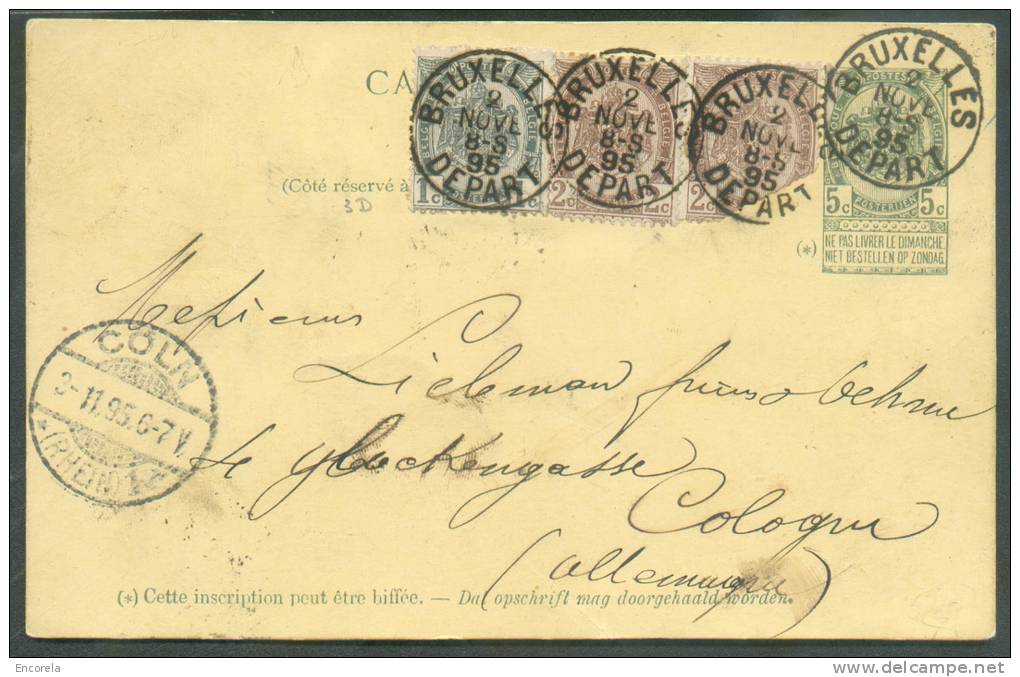 CA
BRUXELLES
2
NOVE
8-S
95
DEPART
BRUXELLES
2
NOVE
8-S
95
DEPART
BRUXELLES
2
NOVE
8-S
95
DEPART
BRUXELLES
2
NOVE
8-S
95
DEPART
1c
2c 2c
2c
POSTES
POSTERIJEN
5c 5c
(Côté réservé à
3D
(*)
NE PAS LIVRER LE DIMANCHE
NIET BESTELLEN OP ZONDAG
Messieurs
CÖLN
3-11.95.6-7V.
(RHEIN) 1
Glockengasse
Cologne
(Allemagne)
(*) Cette inscription peut être biffée. — Dat opschrift mag doorgehaald worden.
Encorela
delcampe.net